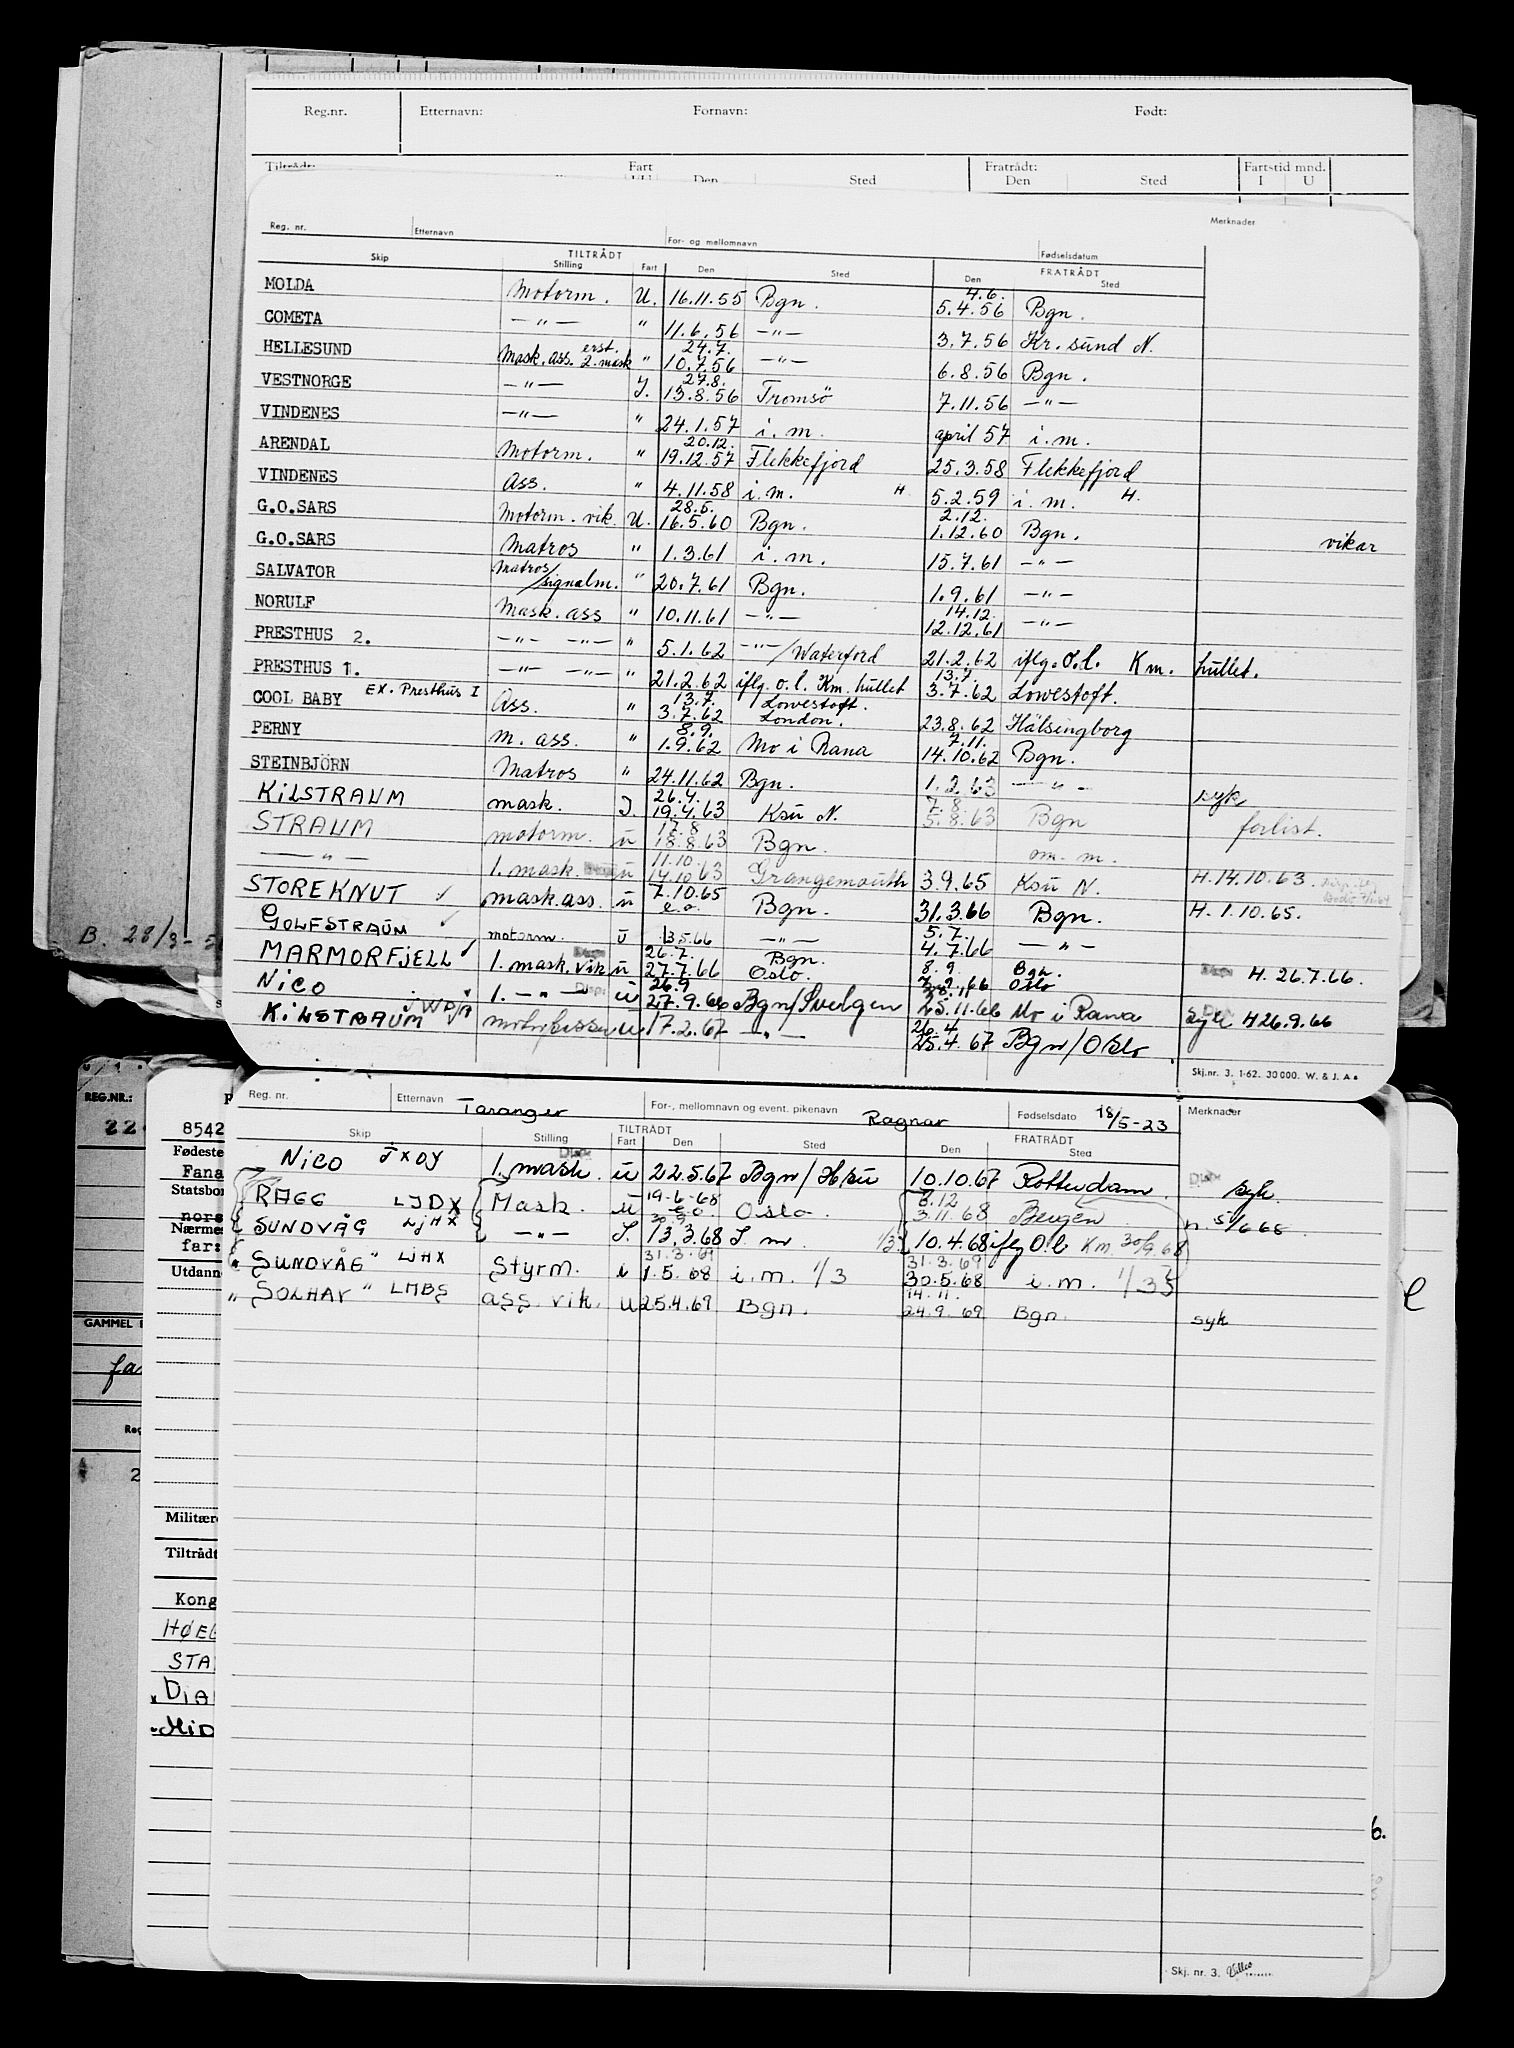 Reg.nr. Etternavn: Fornavn: Født:
Tiltrådt: Fart Fratrådt: Fartstid mnd.
Den Sted Den Sted I U
Reg. nr. Etternavn For- og mellomnavn Merknader
Fødselsdatum
Skip TILTRÅDT FRATRÅDT
Stilling Fart Den Sted Den Sted
MOLDA Motorm. U. 16.11.55 Bgn. 4.6. 5.4.56 Bgn.
COMETA —"— " 11.6.56 —"— 3.7.56 Kr. sund N.
HELLESUND Mask. ass. erst. 2. mask " 24.7. 10.7.56 —"— 6.8.56 Bgn.
VESTNORGE —"— I. 27.8. 13.8.56 Tromsö 7.11.56 —"—
VINDENES —"— " 24.1.57 i. m. april 57 i. m.
ARENDAL Motorm. " 20.12. 19.12.57 Flekkefjord 25.3.58 Flekkefjord
VINDENES Ass. " 4.11.58 i. m. H. 5.2.59 i. m. H.
G.O.SARS Motorm. vik. U. 28.5. 16.5.60 Bgn. 2.12. 1.12.60 Bgn. vikar
G.O.SARS Matros " 1.3.61 i. m. 15.7.61 —"—
SALVATOR Matros/signalm. " 20.7.61 Bgn. 1.9.61 —"—
NORULF Mask. ass " 10.11.61 —"— 14.12. 12.12.61 —"—
PRESTHUS 2. —"— —"— " 5.1.62 —"—/Waterford 21.2.62 iflg. o.l. Km. hullet.
PRESTHUS 1. —"— —"— " 21.2.62 iflg. o. l. Km. hullet 13.7. 3.7.62 Lowestoft.
COOL BABY EX. Presthus I Ass. " 13.7. 3.7.62 Lowestoft. London. 23.8.62 Hälsingborg
PERNY m. ass. " 8.9. 1.9.62 Mo i Rana 7.11. 14.10.62 Bgn.
STEINBJÖRN Matros " 24.11.62 Bgn. 1.2.63 —"— syk
KILSTRAUM mask. I. 26.4. 19.4.63 Ksu N. 7.8. 5.8.63 Bgn forlist.
STRAUM motorm. u 17.8 18.8.63 Bgn. om. m.
—"— 1. mask. u 11.10. 14.10 63 Grangemouth 3.9.65 Ksu N. H.14.10.63.
STOREKNUT mask.ass. u 7.10.65 e.o. Bgn. 31.3.66 Bgn. H. 1.10.65.
GOLFSTRAUM motorm. u 13.5.66 —"— 5.7. 4.7.66 —"—
MARMORFJELL 1. mask. vik u 26.7. 27.7.66 Bgn. Oslo. 8.9. Bgn. Oslo H. 26.7.66.
NICO 1. —"— u 26.9 27.9.66 Bgn/Svelgen 25.11.66 Mo i Rana Syk H 26.9.66
KILSTRAUM u 17.2.67 —"— 26.4. 25.4.67 Bgn/Oslo
Skj.nr. 3. 1-62. 30000. W. & J. A.
B. 28/3-5
REG.NR.:
22
8542
Fødeste
Fana
Statsbor
nors
Nærmes
far:
Utdann
GAMMEL
fa
Reg
2
Militær
Tiltrådt
Kong
HØEG
STA
DIA
MID
Reg. nr. Etternavn Taranger For-, mellomnavn og event. pikenavn Ragnar Fødselsdato 18/5-23 Merknader
Skip TILTRÅDT FRATRÅDT
Stilling Fart Den Sted Den Sted
NICO JXOY 1. mask. u 22.5.67 Bgn/Hsu 10.10.67 Rotterdam. syk.
RAGG LJDX Mask. u 19-6-68 e.o. Oslo. 8.12 3.11 68 Bergen n. 5/6 68
SUNDVÅG LJHX —"— I. 30.9. 13.3.68 I. m. 1/3 10.4.68 iflg O.l. Km. 30/9.68
" SUNDVÅG " LJHX Styrm. i 31.3.69 1.5.68 i. m. 1/3 31.3.69 30.5.68 i. m. 1/3
" SOLHAV " LMBS ass. vik. u 25.4.69 Bgn. 14.11. 24.9.69 Bgn. syk
6.
Skj. nr. 3.